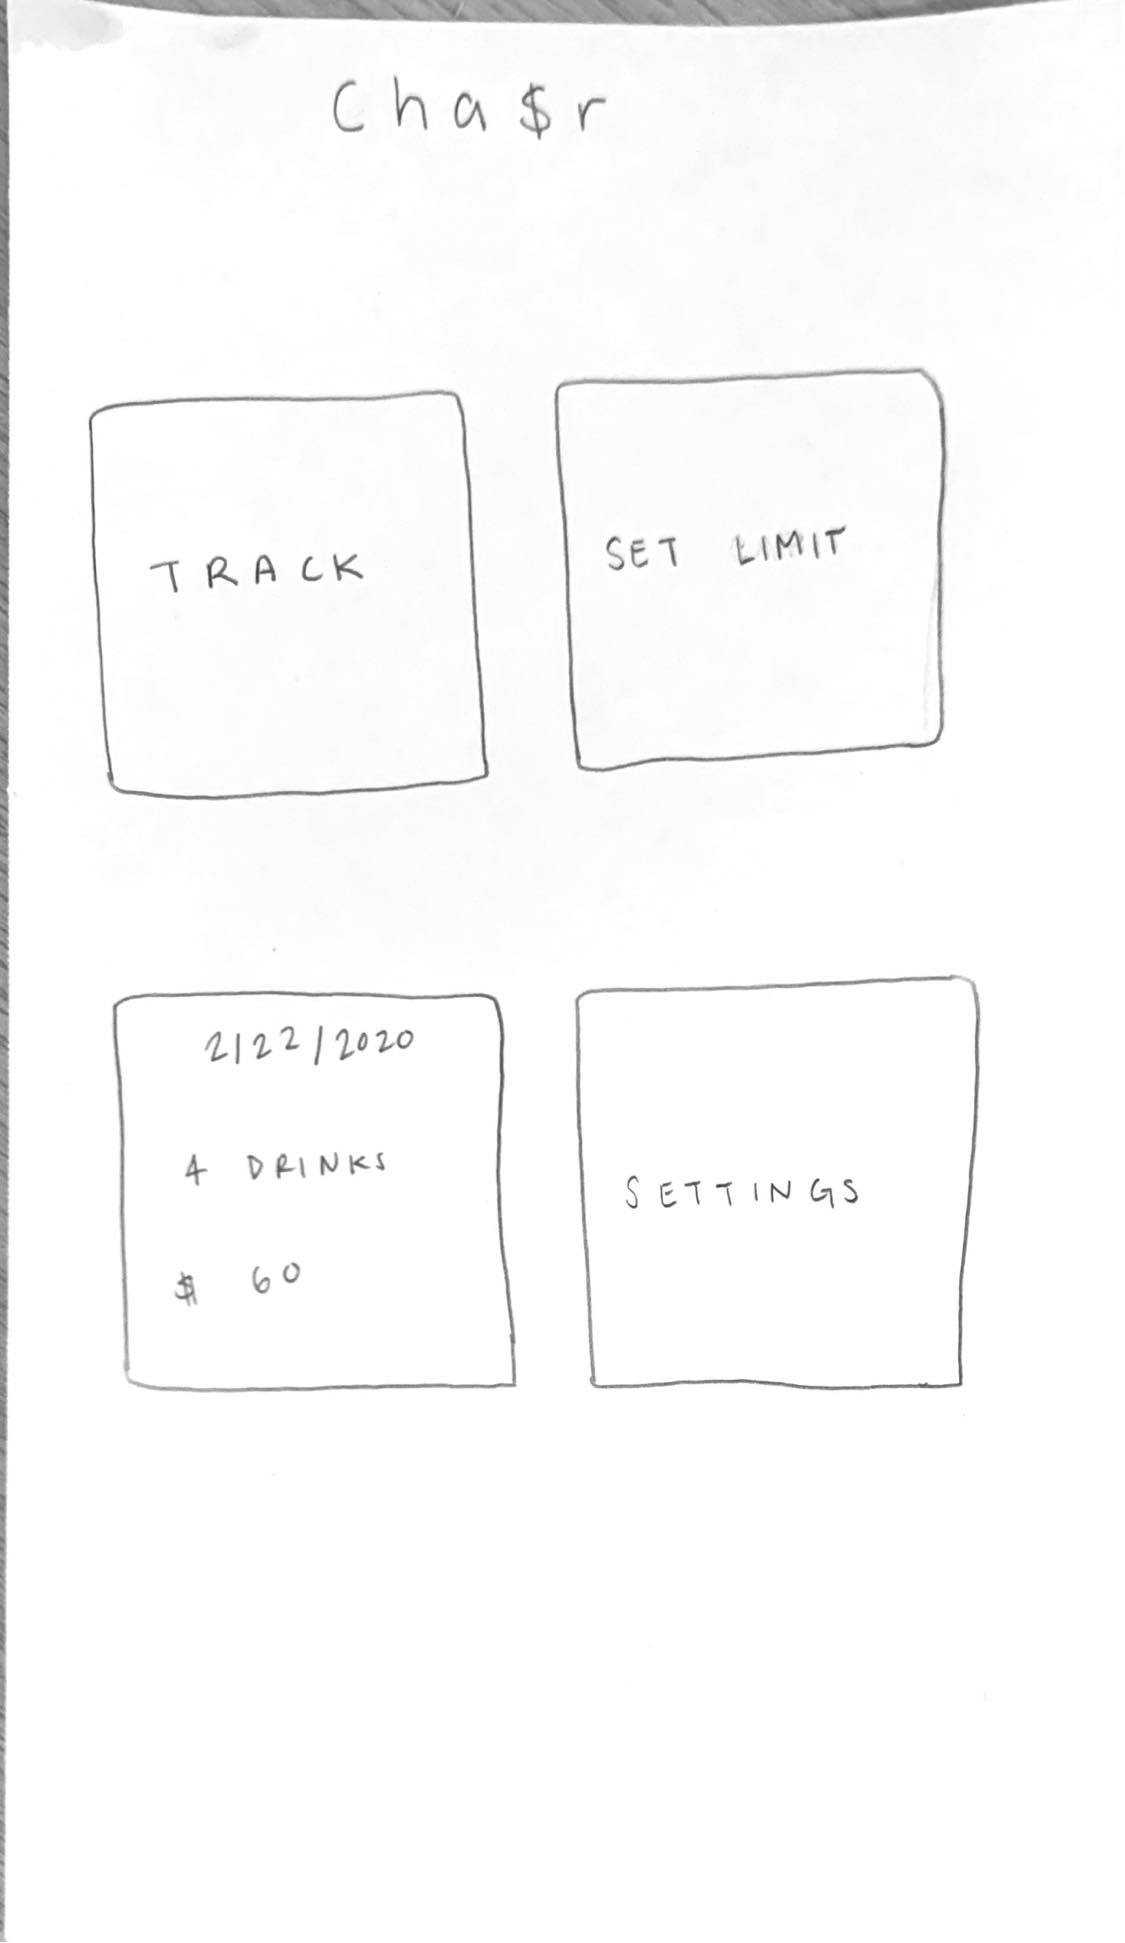 Cha$r
TRACK
SET LIMIT
2/22/2020
4 DRINKS
$ 60
SETTINGS